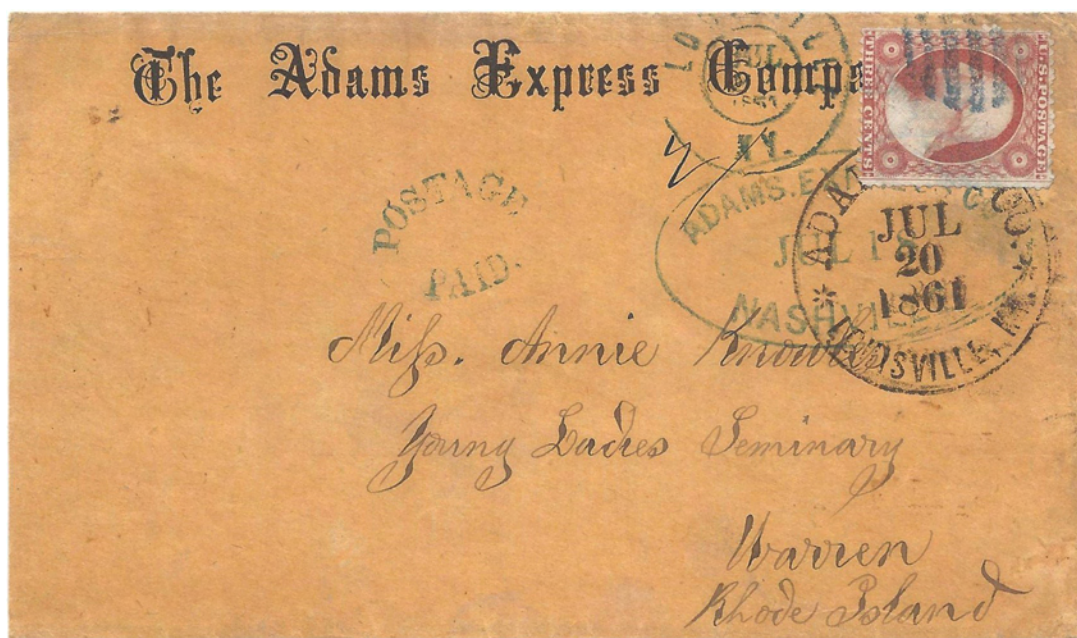 The Adams Express
JUL
KY.
U.S. POSTAGE
THREE CENTS
POSTAGE
PAID.
ADAMS. CO.
JUL 18
NASHVILLE
JUL
20
1861
LOUISVILLE, KY.
Miſs. Annie Knowles
Young Ladies Seminary
Warren
Rhode Island